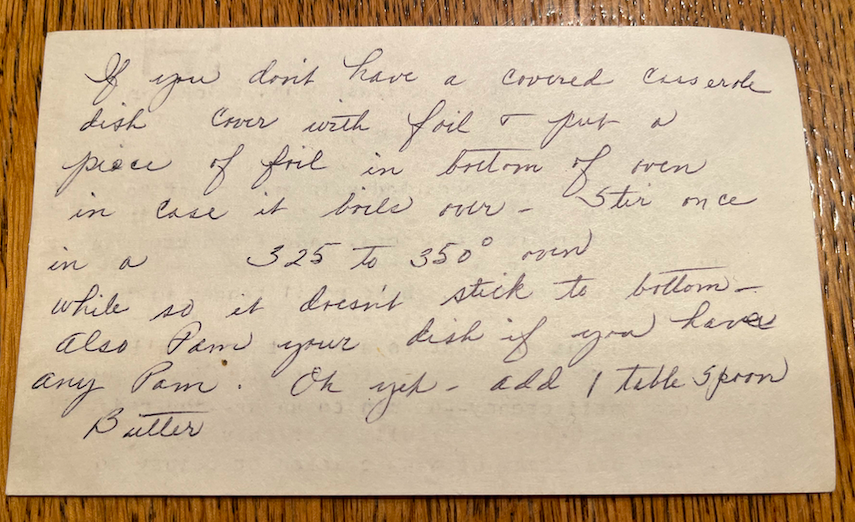 If you don't have a covered casserole
dish cover with foil & put a
piece of foil in bottom of oven
in case it boils over - Stir once
in a 325 to 350° oven
while so it doesn't stick to bottom -
also Pam your dish if you have
any Pam. Oh yeh - add 1 table spoon
Butter